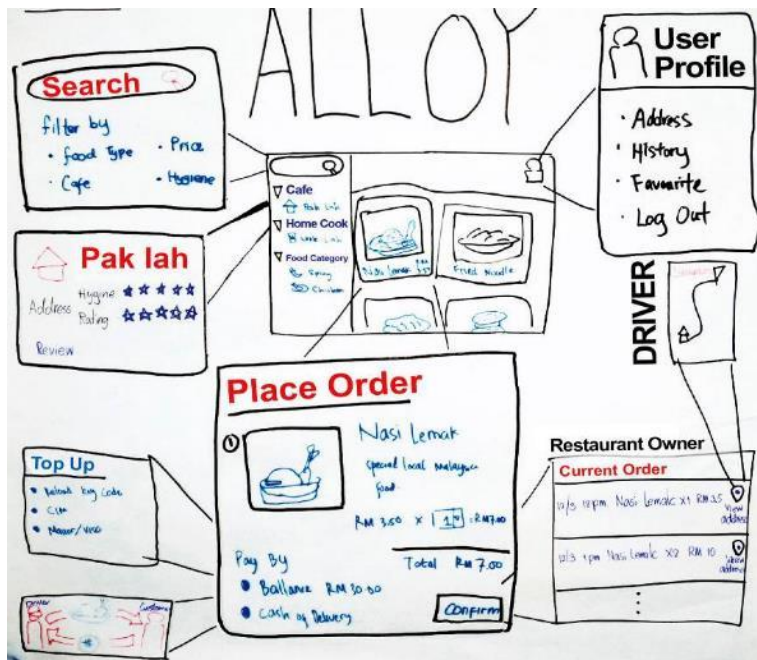 ALLOY
Search
filter by
• food Type
• Price
• Cafe
• Hygiene
User
Profile
• Address
• History
• Favourite
• Log Out
Cafe
Pak Lah
Home Cook
Food Category
Spicy
Chicken
Nasi Lemak RM
Fried Noodle
Pak lah
Address
Hygine
Rating
Review
DRIVER
Place Order
①
Nasi Lemak
special local malaysia
food
RM 3.50 x 1 = RM7.00
Total RM 7.00
Pay By
• Ballance RM 30.00
• Cash of Delivery
CONFIRM
Top Up
• Reload key code
• Master/visa
Driver
Customer
Restaurant Owner
Current Order
12/3 12pm Nasi Lemak x1 RM 3.5
View
address
12/3 1pm Nasi Lemak x2 RM 10
View
address